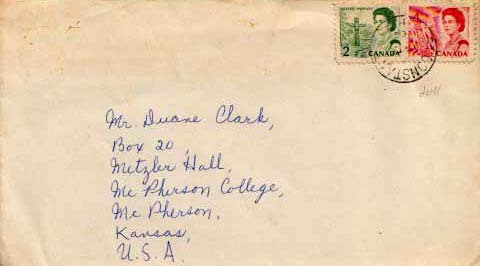 2 CANADA CANADA
Mr. Duane Clark,
Box 20,
Metzler Hall,
Mc Pherson College,
Mc Pherson,
Kansas,
U.S.A.